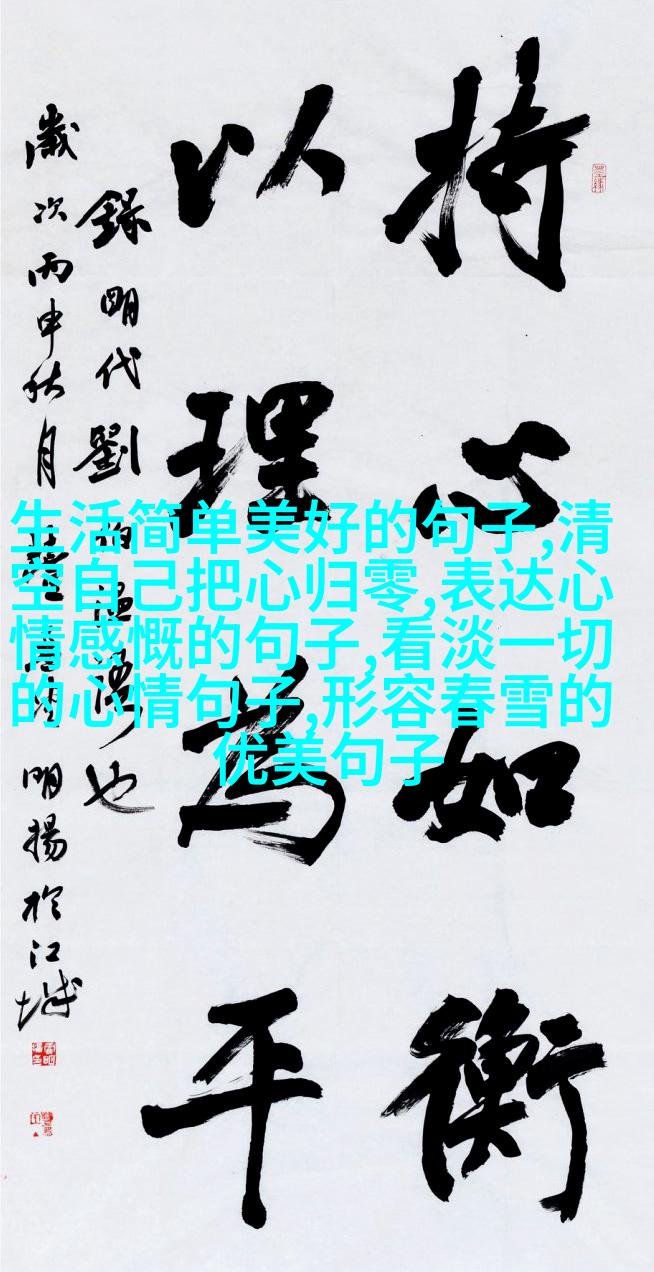 持心如衡
以理為平
錄明代劉伯溫語也
歲次丙申秋月明揚於江城
生活简单美好的句子,清
空自己把心归零,表达心
情感慨的句子,看淡一切
的心情句子,形容春雪的
优美句子